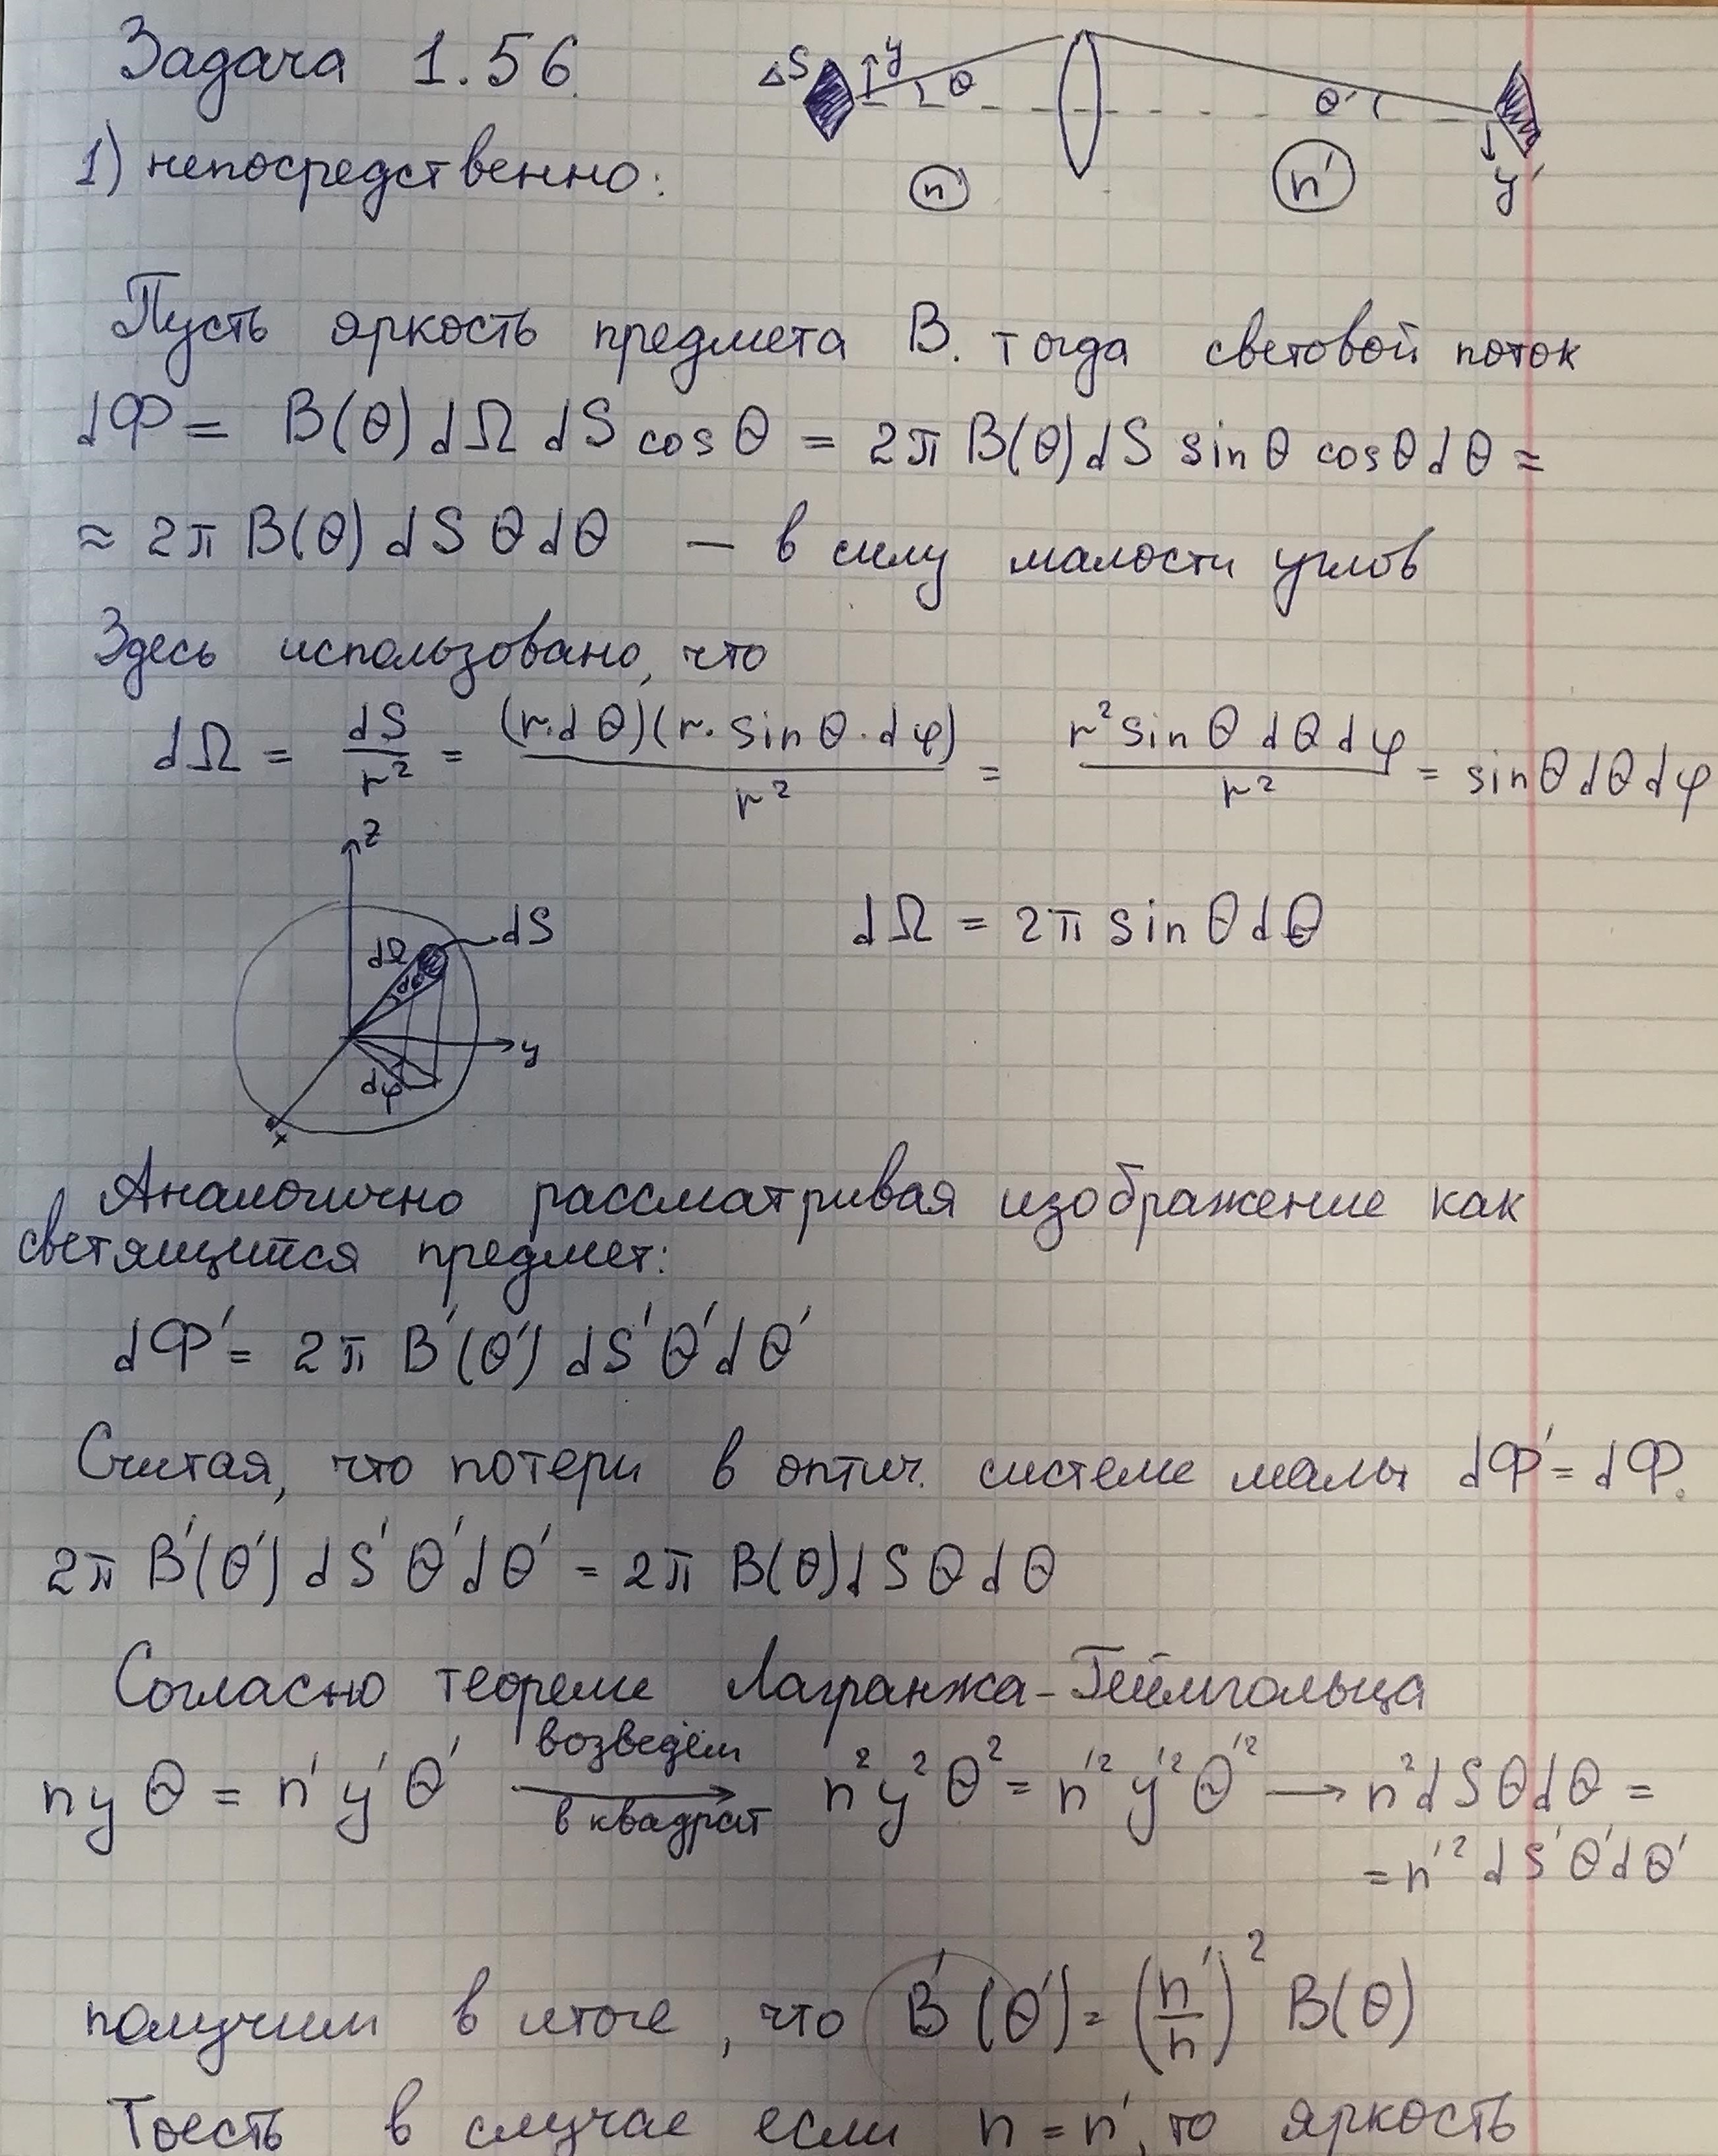 Задача 1.56.
ΔS y θ θ' y'
n n'
1) непосредственно:
Пусть яркость предмета B. тогда световой поток
dФ = B(θ) dΩ dS cosθ = 2π B(θ) dS sinθ cosθ dθ ≈
≈ 2π B(θ) dS θ dθ — в силу малости углов
Здесь использовано, что
dΩ = dS/r² = (r·dθ)(r·sinθ·dφ)/r² = r² sinθ dθ dφ/r² = sinθ dθ dφ
z
dΩ dS dθ
y
dφ
x
dΩ = 2π sinθ dθ
Аналогично рассматривая изображение как
светящийся предмет:
dФ' = 2π B'(θ') dS' θ' dθ'
Считая, что потери в оптич. системе малы dФ' = dФ.
2π B'(θ') dS' θ' dθ' = 2π B(θ) dS θ dθ
Согласно теореме Лагранжа-Геймгольца
n y θ = n' y' θ' возведём в квадрат → n² y² θ² = n'² y'² θ'² → n² dS θ dθ =
= n'² dS' θ' dθ'
получим в итоге, что B'(θ') = (n'/n)² B(θ)
Тоесть в случае если n = n', то яркость